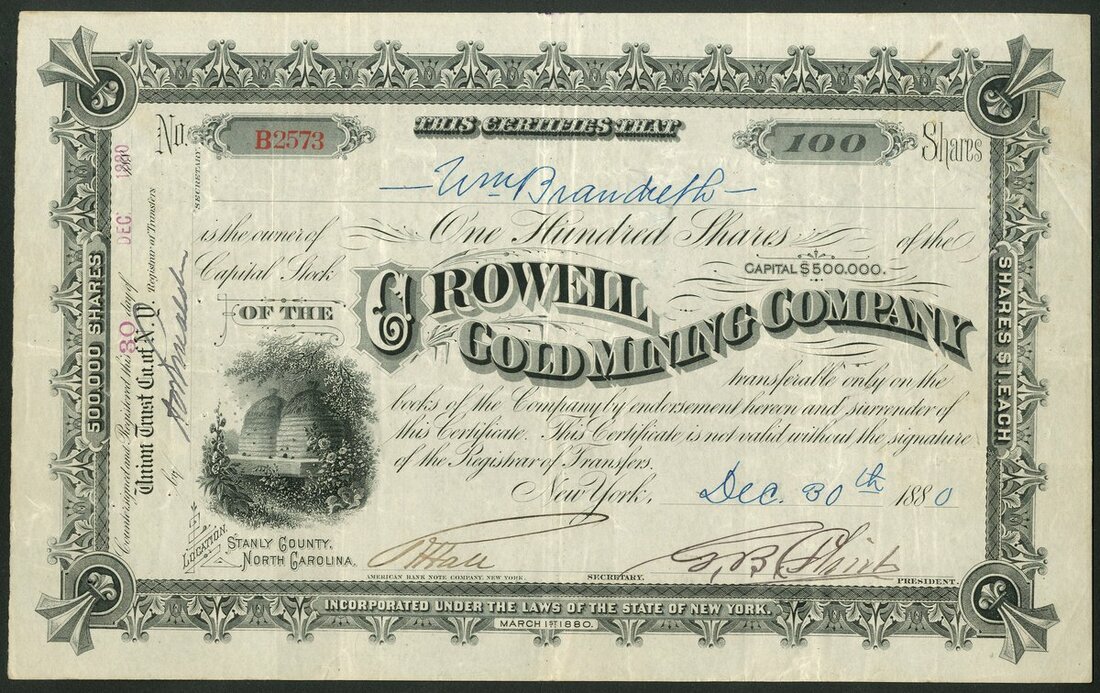 No. B2573
THIS CERTIFIES THAT
100 Shares
Wm Brandreth
is the owner of One Hundred Shares of the
Capital Stock
CAPITAL $500.000.
OF THE
CROWELL
GOLD MINING COMPANY
transferable only on the
books of the Company by endorsement hereon and surrender of
this Certificate. This Certificate is not valid without the signature
of the Registrar of Transfers.
New York, Dec. 30th 1880
LOCATION.
STANLY COUNTY.
NORTH CAROLINA.
AMERICAN BANK NOTE COMPANY NEW YORK.
SECRETARY.
PRESIDENT.
INCORPORATED UNDER THE LAWS OF THE STATE OF NEW YORK.
MARCH 1ST 1880.
500,000 SHARES
SHARES $1. EACH
Countersigned and Registered this 30 day of DEC. 1880
Union Trust Co. of N.Y. Registrar of Transfers
by
SECRETARY.